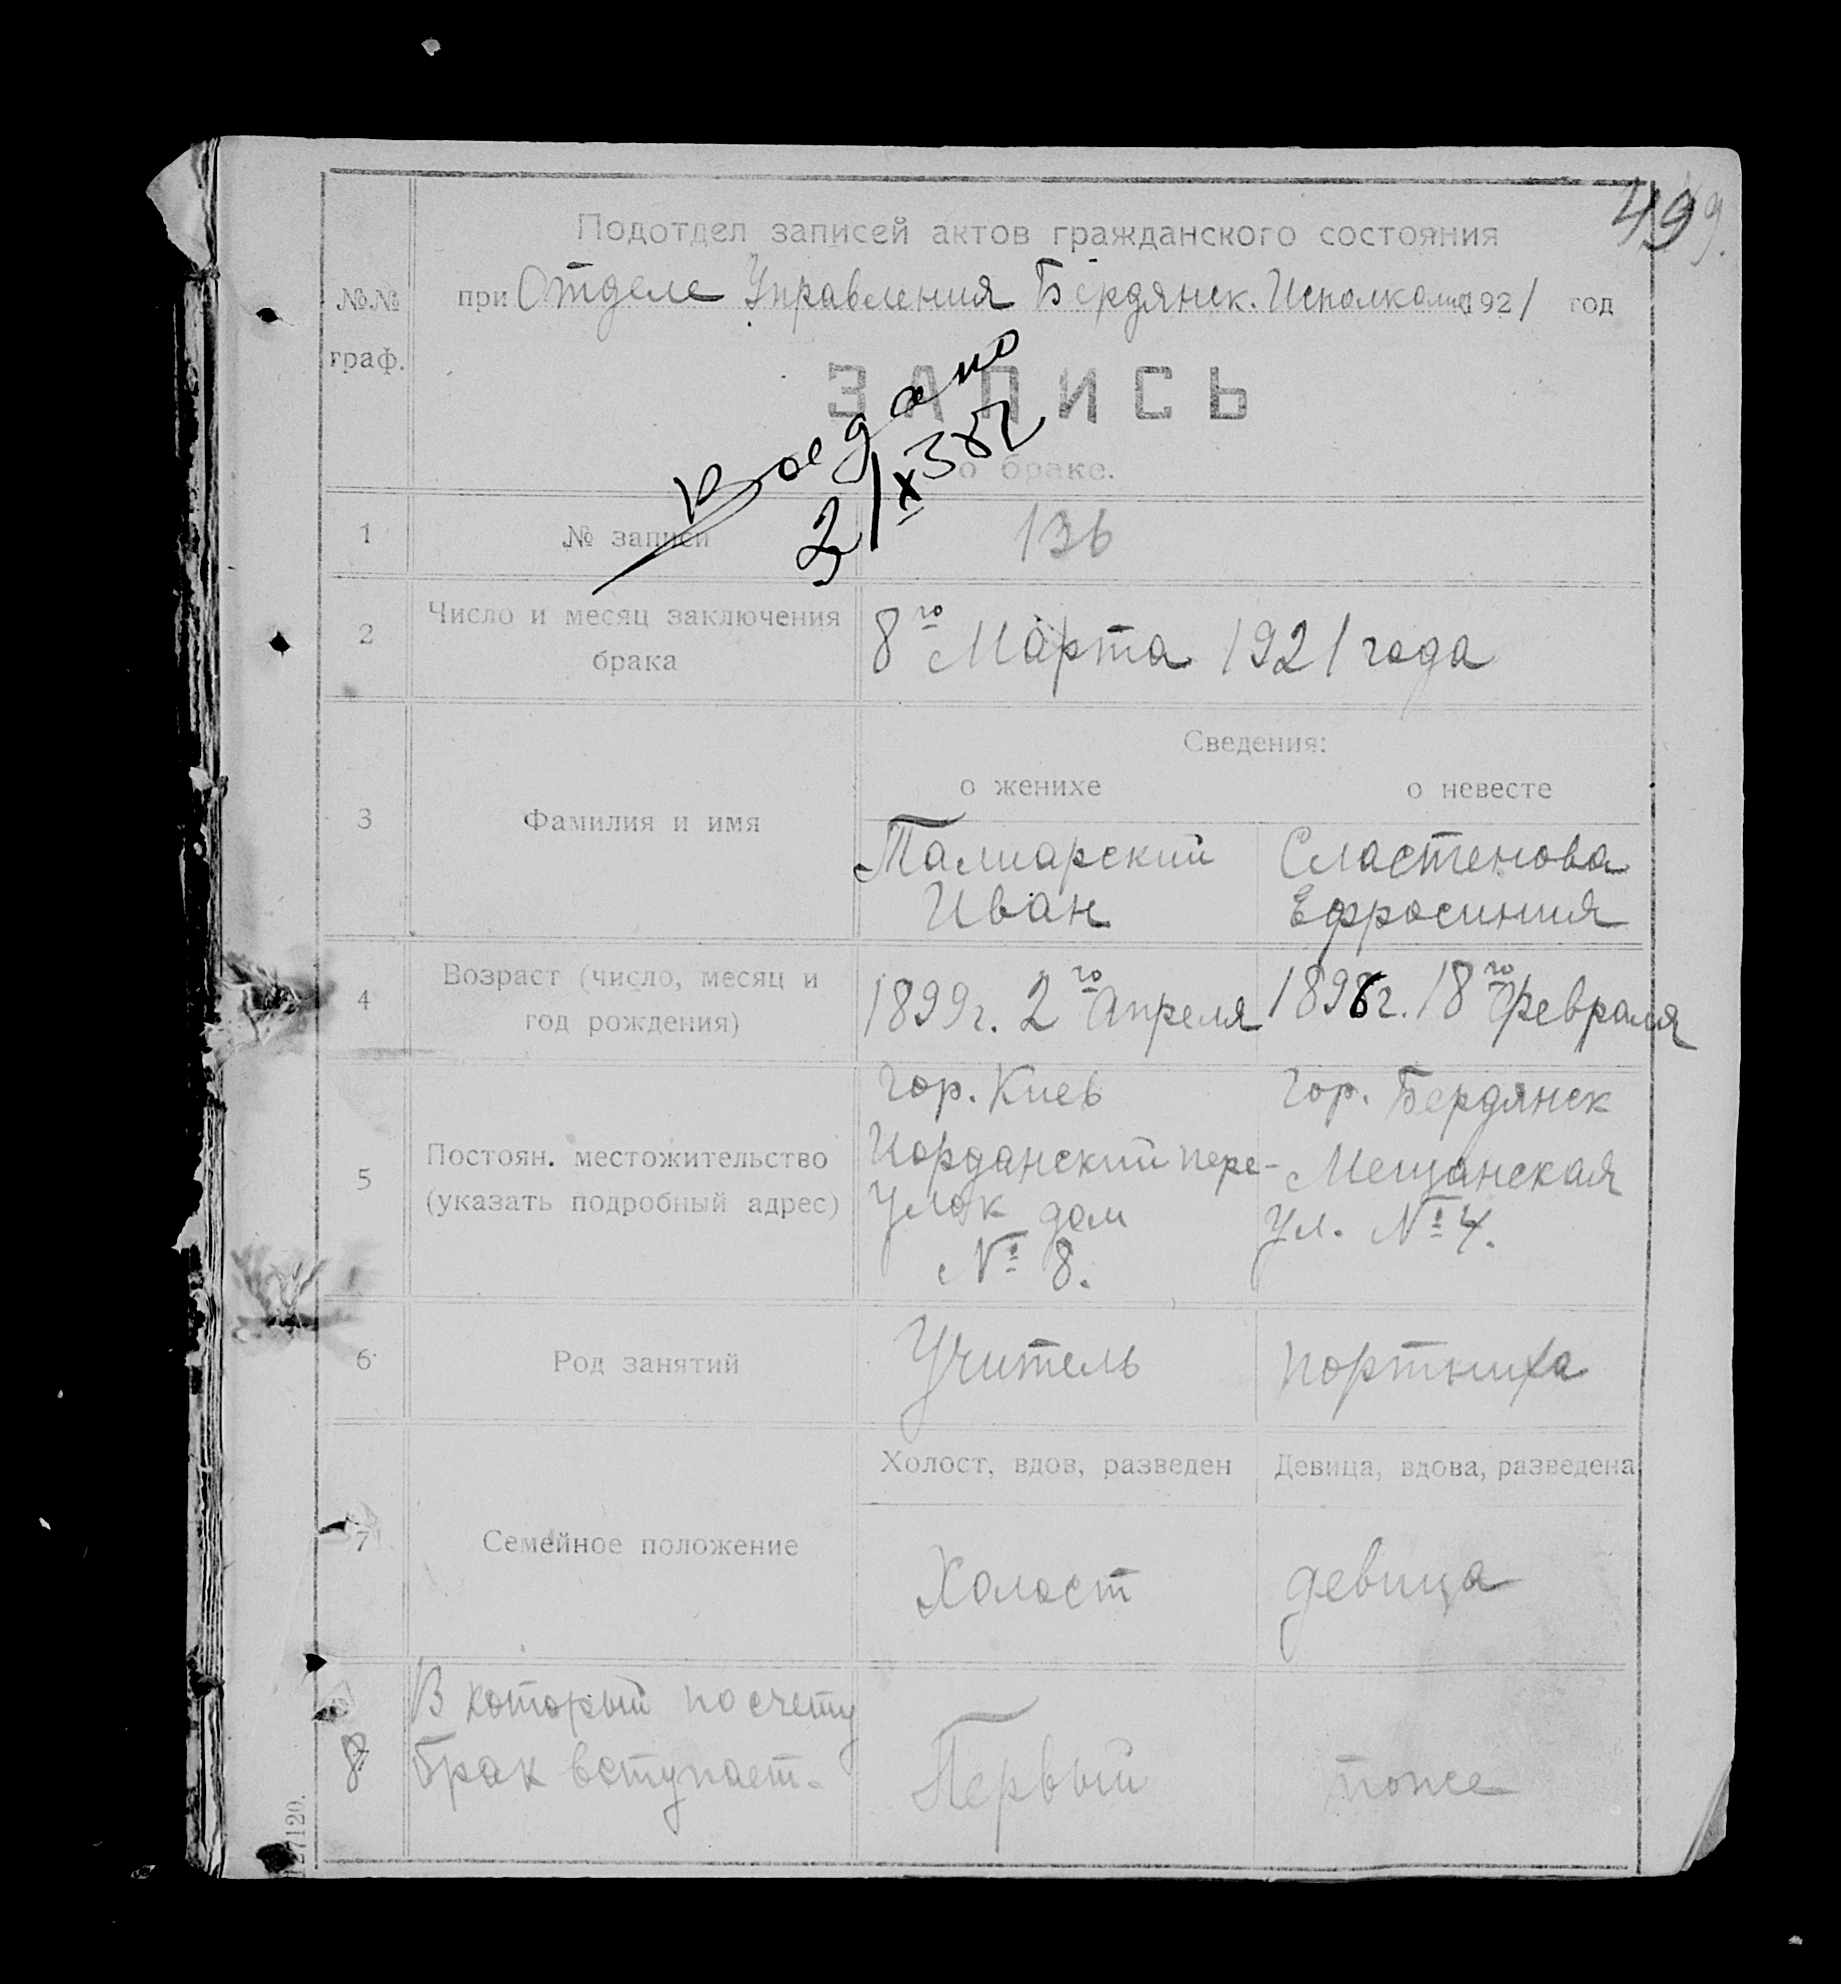 499.
Подотдел записей актов гражданского состояния
при Отделе Управления Бердянск. Исполкома 1921 год
№.№
граф.
ЗАПИСЬ
о браке.
1 № записи 136
2 Число и месяц заключения
брака
8го Марта 1921 года
Сведения:
о женихе о невесте
3 Фамилия и имя
Талиарский Сластенова
Иван Ефросиния
4 Возраст (число, месяц и
год рождения)
1899г. 2го Апреля 1898г. 18го Февраля
5 Постоян. местожительство
(указать подробный адрес)
гор. Киев Гор. Бердянск
Иорданский пере- Мещанская
улок дом ул. № 4.
№ 8.
6 Род занятий Учитель портниха
Холост, вдов, разведен Девица, вдова, разведена
7 Семейное положение
Холост девица
8 В который по счету
брак вступает. Первый тоже
127120.